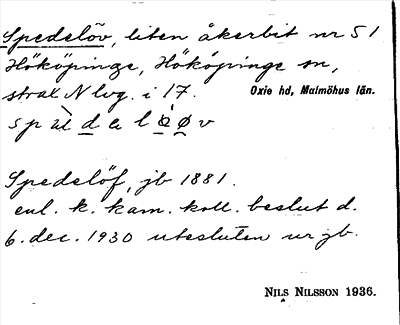 Spedelöv, liten åkerbit nr 51
Hököpinge, Hököpinge sn,
strax N lvg. i 17. Oxie hd, Malmöhus län.
Spedelöf, jb 1881.
enl. k. kam. koll. beslut d.
6. dec. 1930 utesluten ur jb.
NILS NILSSON 1936.